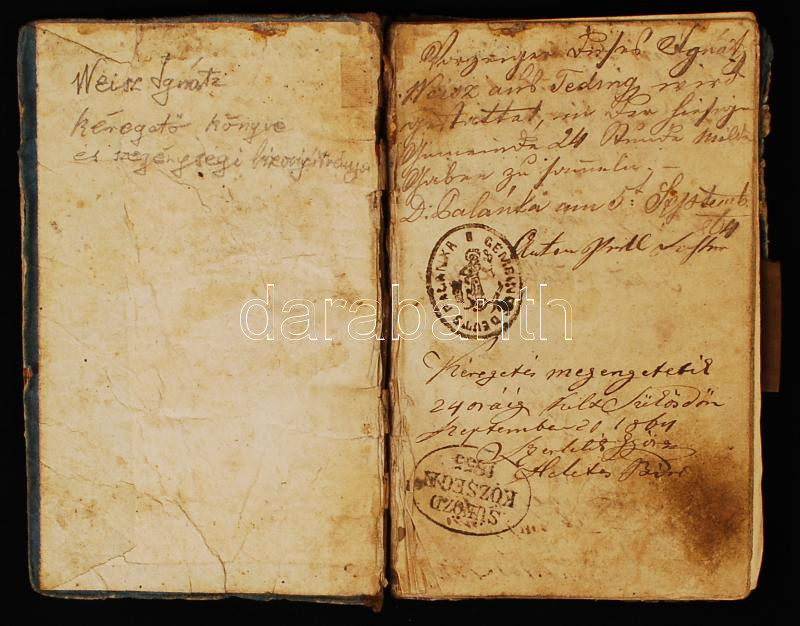 Weisz Ignátz
kéregető könyve
és szegénységi bizonyítványa
Vorzeiger dieses Ignátz
Weisz aus Teding wird
gestattet, in der hiesigen
Gemeinde 24 Stunde milde
Gaben zu sammeln, –
D. Palánka am 5t Septemb
Anton
GEMEINDE DEUTS PALANKA
Kéregetés megengetetik
24 óráig Sükösdön
Szeptember 20, 1864
SÜKÖZD
KÖZSEGE
1855
darabanth